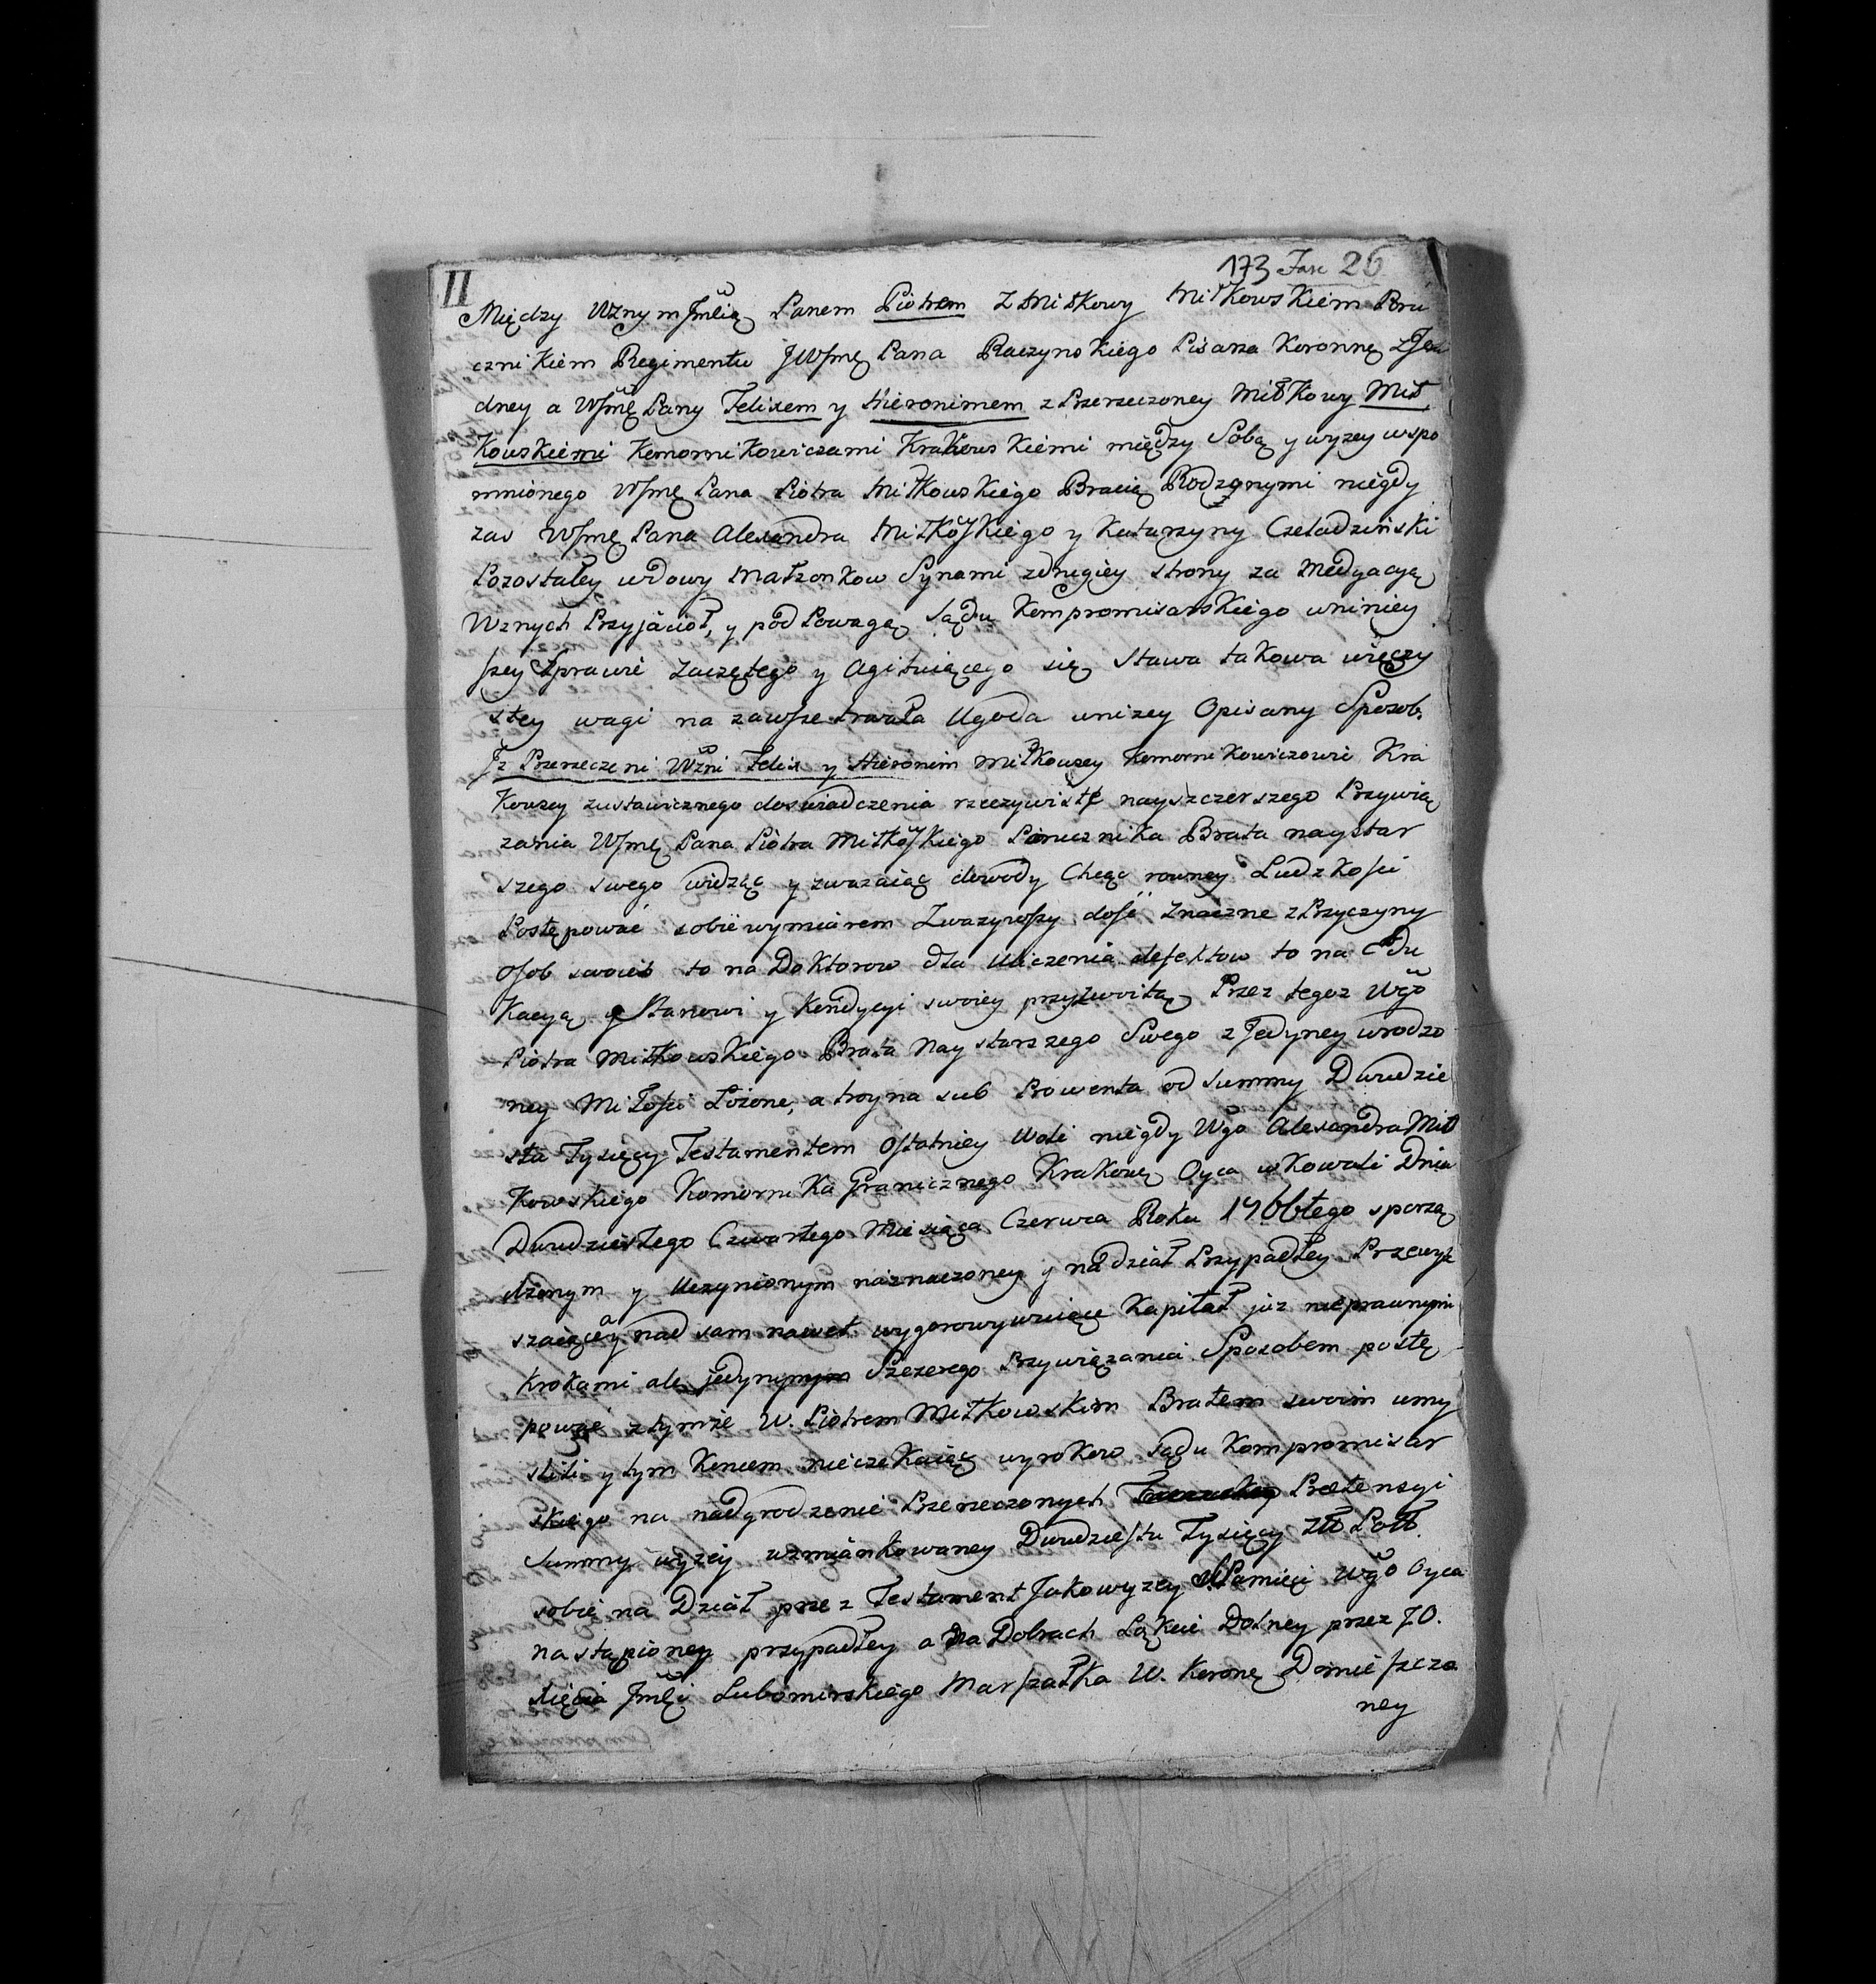 II
173 Fasc 26
Między Wznym Jmścią Panem Piotrem Z Miłkowy Miłkowskiem Poru
cznikiem Regimentu JWJmę Pana Raczynskiego Pisarza Koronnę z Je
dney a WJmę Pany Felixem y Hieronimem z Przerzeczoney Miłkowy Mił
Kowskiemi Komornikowiczami Krakowskiemi między Sobą y wyzey wspo
mnionego WJmę Pana Piotra Miłkowskiego Bracią Rodzonymi niegdy
zas WJmę Pana Alexandra Miłkowskiego y Katarzyny Czeladzinski
Pozostałey wdowy Małzonkow Synami zdrugiey strony za Medyacyą
Wznych Przyjacioł, y pod Powagą Sądu Kompromisarskiego wniniey
szey Sprawie zaczętego y Agituiącego się Stawa takowa wieczy
stey wagi na zawsze trwała Ugoda unizey Opisany Sposob.
Jz Przerzeczeni Wzni Felix y Hieronim Miłkowscy Komornikowiczowie Kra
Kowscy zustawicznego doswiadczenia rzeczywiste nayszczerszego Przywią
zania WJmę Pana Piotra Miłkowskiego Porucznika Brata naystar
szego swego widząc y zwazaiąc dowody Chcąc rowney Ludzkości
Postępować sobie wymiarem Zwazywszy dość znaczne z Przyczyny
Osob swoich to na Doktorow dla Uliczenia defektow to na Edu
Kacyą Stanowi y Kondycyi swoiey przyzwoitą Przez tegoz Wgo
Piotra Miłkowskiego Brata Naystarszego Swego z Jedyney wrodzo
ney Miłości Łożone, a troyna sub Prowenta od Summy Dwudzie
stu Tysięcy Testamentem Ostatniey Woli niegdy Wgo Alexandra Mił
Kowskiego Komornika Granicznego Krakowę Oyca w Kowali Dnia
Dwudziestego Czwartego Miesiąca Czerwca Roku 1766tego sporzą
dzonym y Uczynionym naznaczoney y na dział Przypadłey Przewyż
szaiącey nad sam nawet wygorowywuiące Kapitał juz nieprawnymi
Krokami ale jedynym Szczerego Przywiązania Sposobem postę
pować z tymże W. Piotrem Miłkowskim Bratem swoim umy
slili y tym Koncem nieczekaiąc wyrokow Sądu Kompromisar
skiego na nadgrodzenie Przerzeczonych Pretensyi
Summy wyzey wzmiankowaney Dwudziestu Tysięcy Złł Poll.
sobie na Dział przez Testament Jakowyzey Pamięci Wgo Oyca
nastąpioney przypadłey a na Dobrach Łąkcie Dolney przez JO.
Xięcia Jmści Lubomirskiego Marszałka W. Koronę Domieszcza
ney